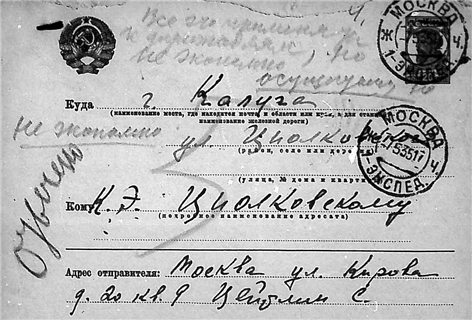 Все это применяя
к дирижаблям
не экономно, но
осуществимо
МОСКВА
1-ЭКСПЕД.
Куда г. Калуга
(наименование места, где находится почта, и области или края, а для станций
наименование железной дороги)
не экономно
ул. Циолковского
(район, село или деревня)
МОСКВА
1-ЭКСПЕД.
(улица, № дома и квартиры)
Отвечено
Кому К. Э. Циолковскому
(подробное наименование адресата)
Адрес отправителя: Москва ул. Кирова
д. 20 кв. 9 Цейтлин С.